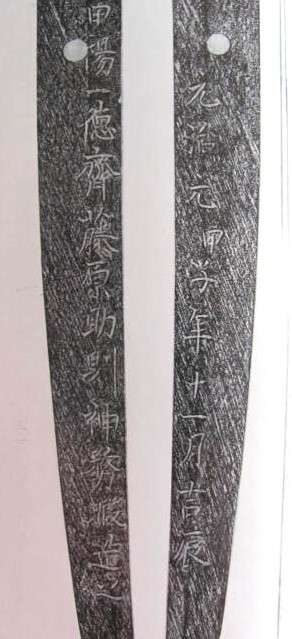 甲陽一徳齊藤原助則神務造之
元治元甲子年十一月吉辰